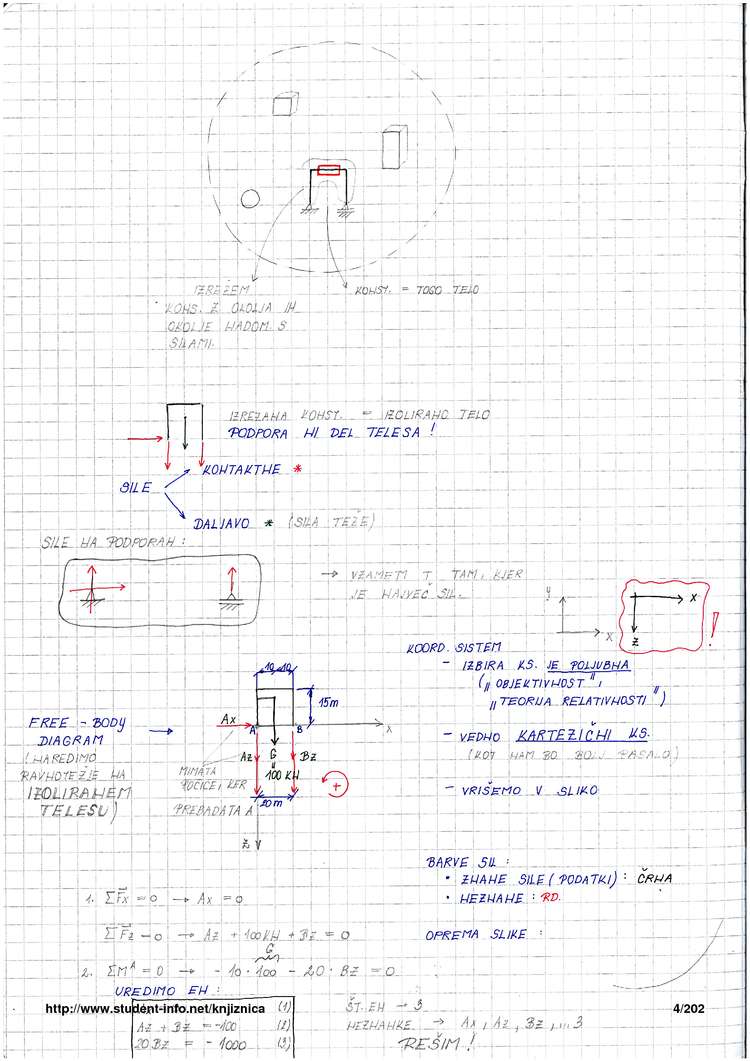 IZREŽEM
KONS. Z OKOLJA IN
OKOLJE NADOM. S
SILAMI.
KONST. = TOGO TELO
IZREZANA KONST. = IZOLIRANO TELO
PODPORA NI DEL TELESA !
SILE
KONTAKTNE *
DALJAVO * (SILA TEŽE)
SILE NA PODPORAH :
→ VZAMEM T TAM, KJER
JE NAJVEČ SIL.
y
X
X
Z
!
KOORD. SISTEM
- IZBIRA K.S. JE POLJUBNA
(„OBJEKTIVNOST",
„TEORIJA RELATIVNOSTI")
- VEDNO KARTEZIČNI K.S.
(KOT NAM BO BOLJ PASALO)
- VRIŠEMO V SLIKO
FREE - BODY
DIAGRAM
(NAREDIMO
RAVNOTEŽJE NA
IZOLIRANEM
TELESU)
10 10
15m
Ax
A
B
X
Az
G
"
100 KN
Bz
+
20m
Z
NIMATA
ROČICE, KER
PREBADATA A
BARVE SIL :
• ZNANE SILE (PODATKI) : ČRNA
• NEZNANE : RD.
OPREMA SLIKE :
1. ΣFx = 0 → Ax = 0
ΣFz = 0 → Az + 100KN + Bz = 0
G
2. ΣMᴬ = 0 → - 10 · 100 - 20 · Bz = 0
UREDIMO EN :
http://www.student-info.net/knjiznica
(1)
ŠT. EN → 3
4/202
Az + Bz = -100 (2)
NEZNANKE → Ax, Az, Bz, ... 3
20 Bz = - 1000 (3)
REŠIM !